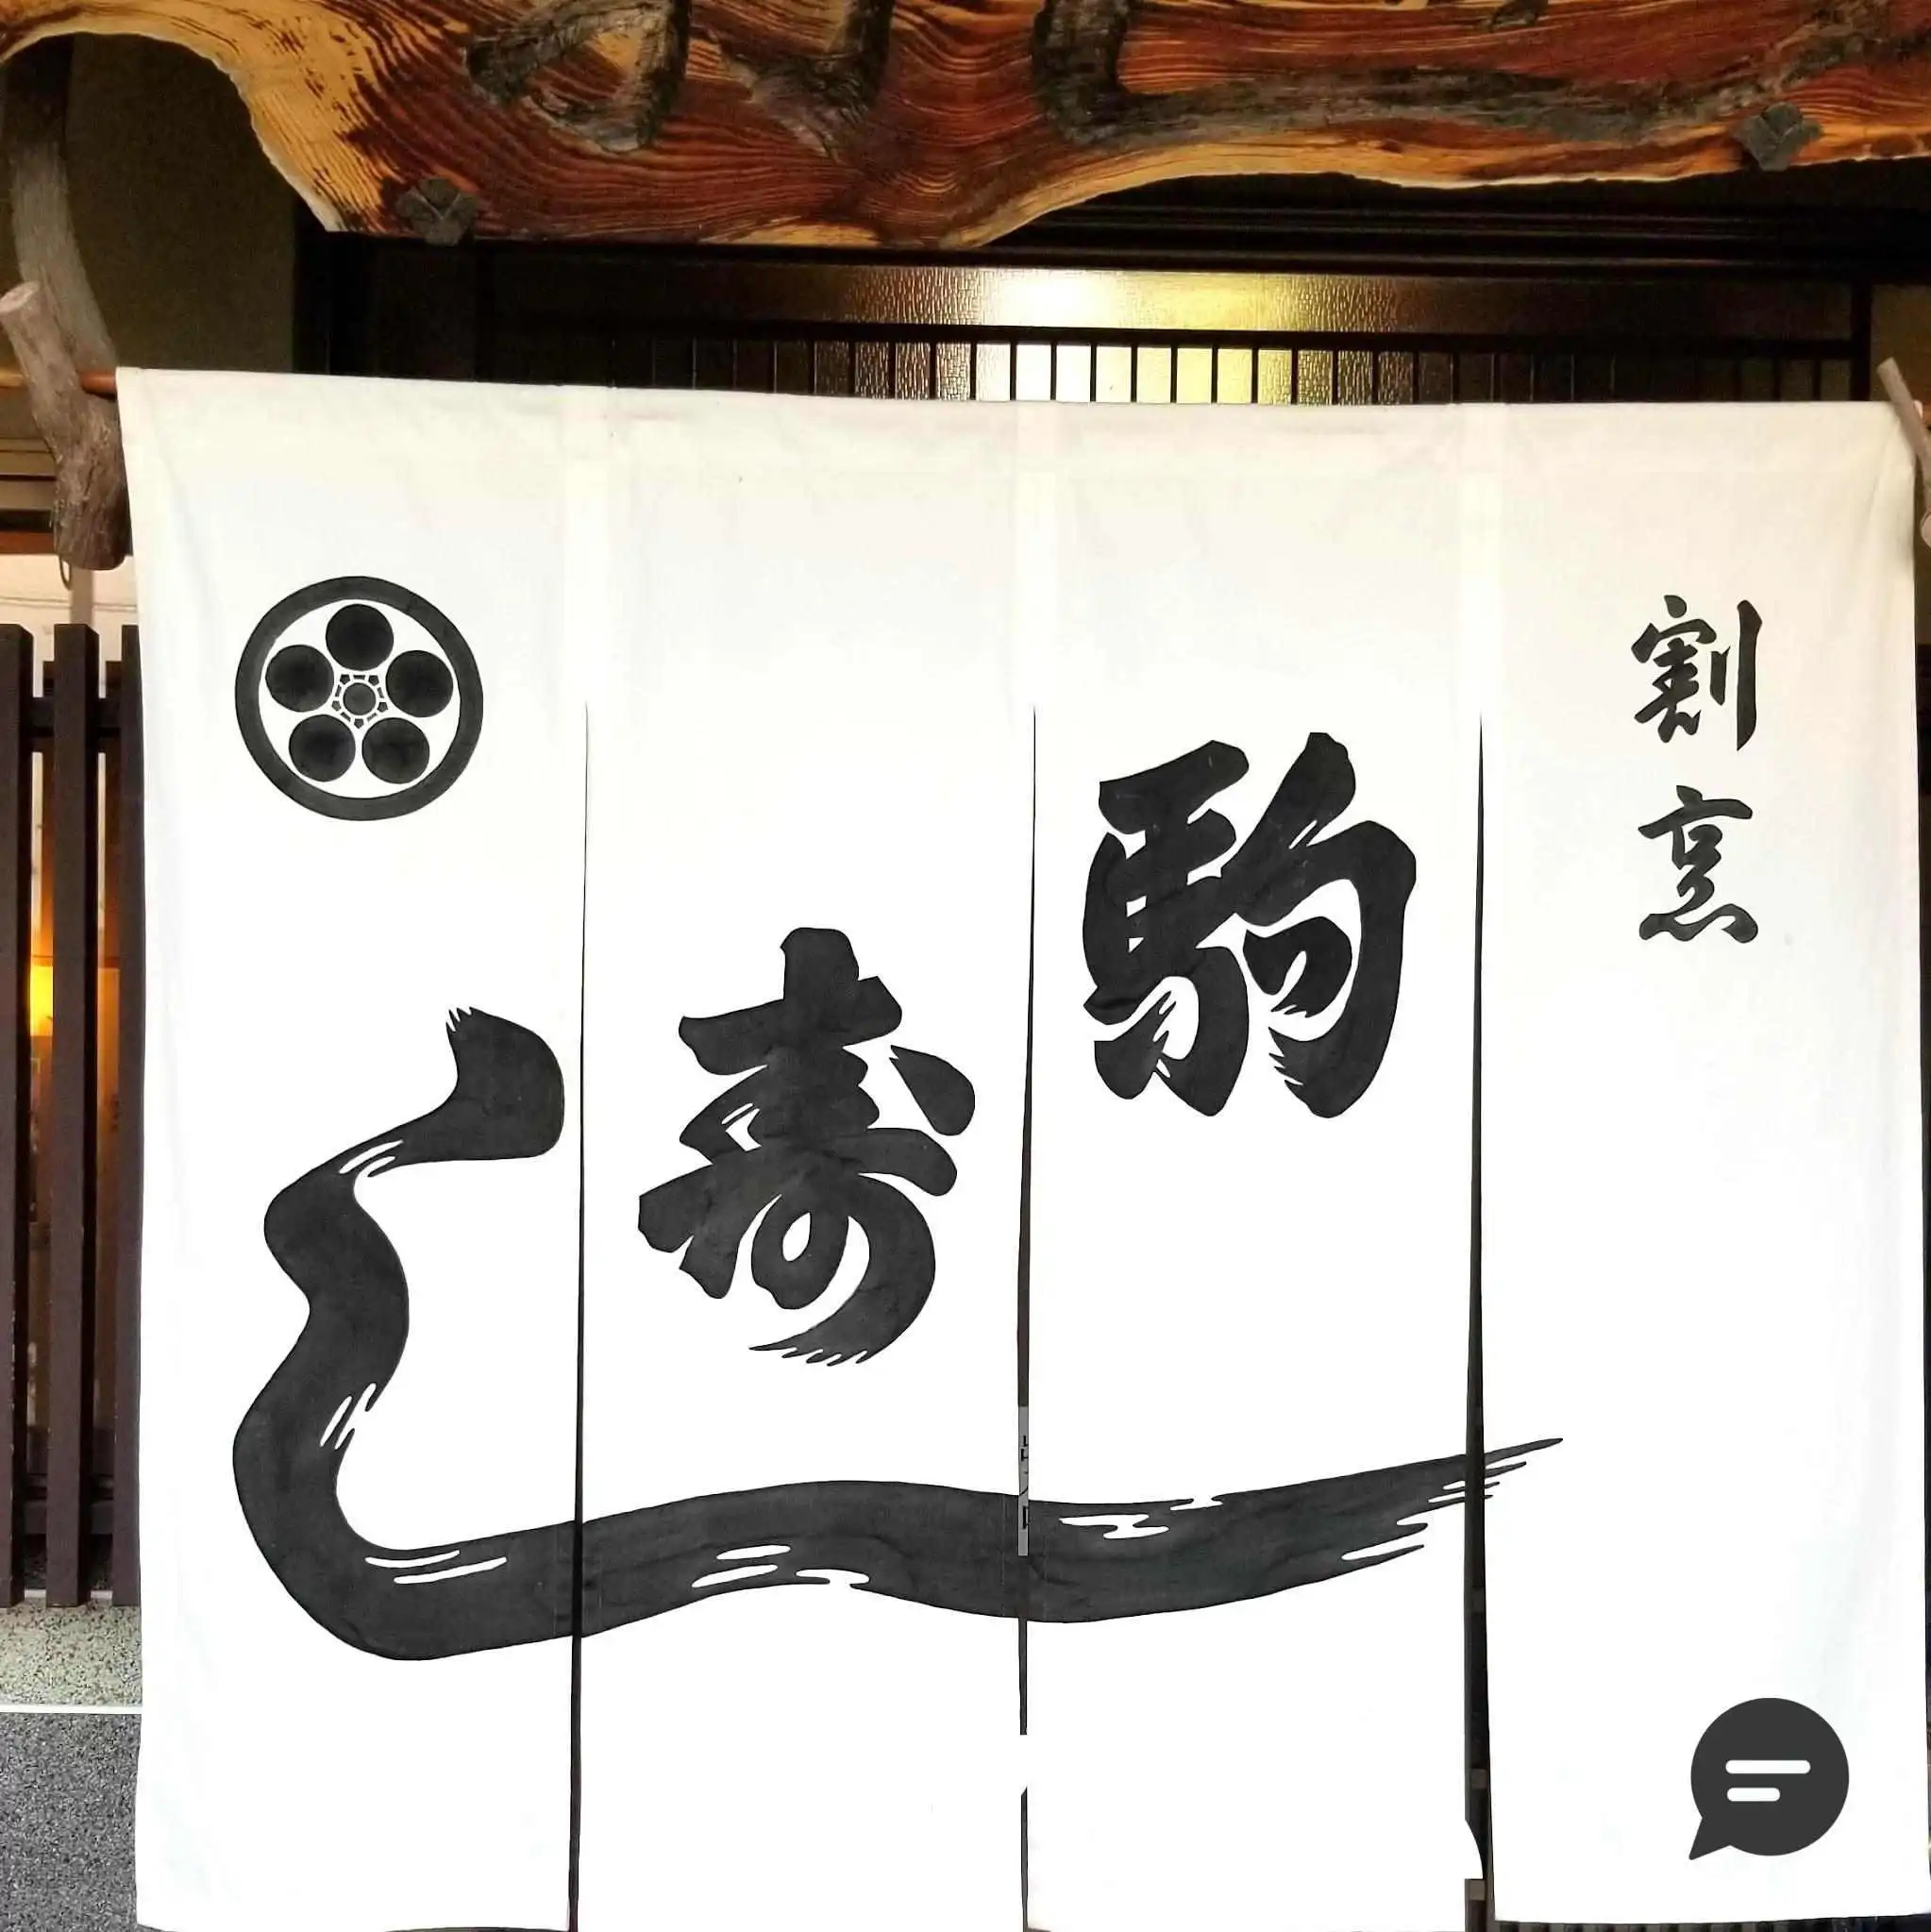 割烹
駒寿し